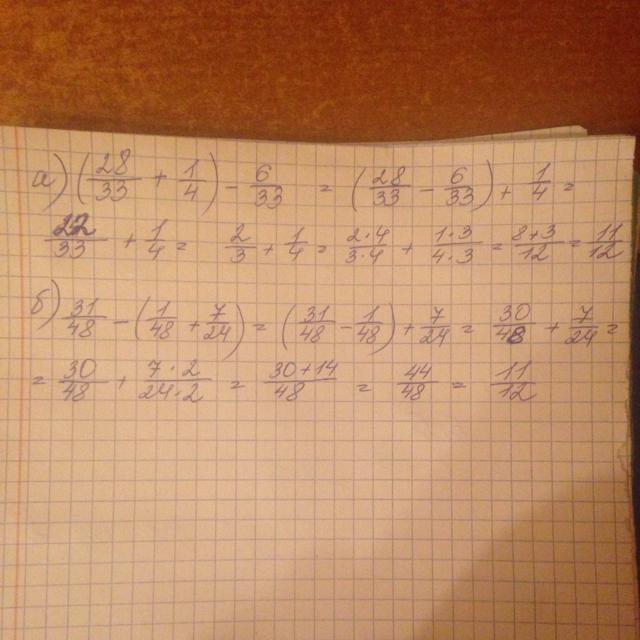 а) (28/33 + 1/4) - 6/33 = (28/33 - 6/33) + 1/4 =
22/33 + 1/4 = 2/3 + 1/4 = 2·4/3·4 + 1·3/4·3 = 8+3/12 = 11/12
б) 31/48 - (1/48 + 7/24) = (31/48 - 1/48) + 7/24 = 30/48 + 7/24 =
= 30/48 + 7·2/24·2 = 30+14/48 = 44/48 = 11/12